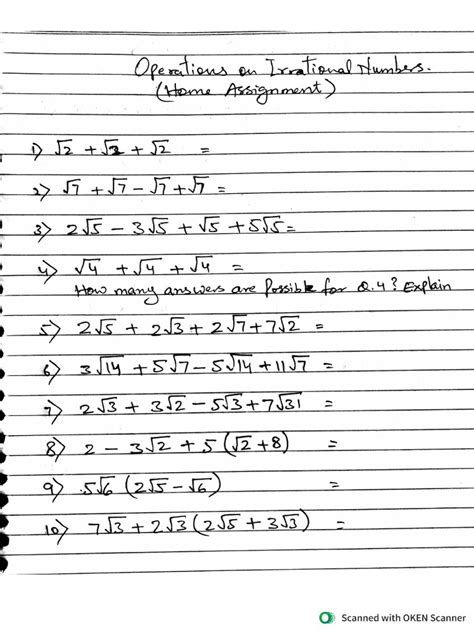 Operations on Irrational Numbers.
(Home Assignment)
1) √2 + √2 + √2 =
2) √7 + √7 - √7 + √7 =
3) 2√5 - 3√5 + √5 + 5√5 =
4) √4 + √4 + √4 =
How many answers are Possible for Q.4? Explain
5) 2√5 + 2√3 + 2√7 + 7√2 =
6) 3√14 + 5√7 - 5√14 + 11√7 =
7) 2√3 + 3√2 - 5√3 + 7√31 =
8) 2 - 3√2 + 5(√2 + 8) =
9) 5√6 (2√5 - √6) =
10) 7√3 + 2√3 (2√5 + 3√3) =
Scanned with OKEN Scanner